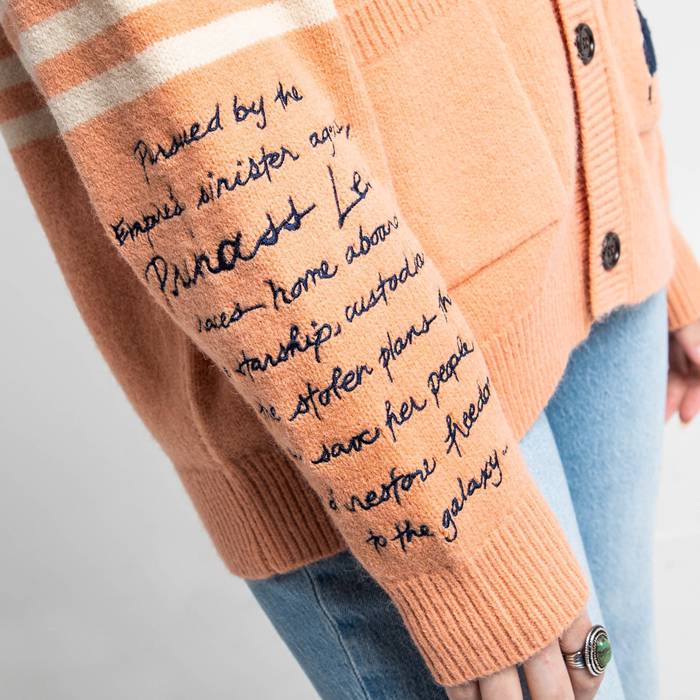 Pursued by the
Empire's sinister age
Princess Le
races home aboar
starship, custodia
he stolen plans th
save her people
d restore freedo
to the galaxy..